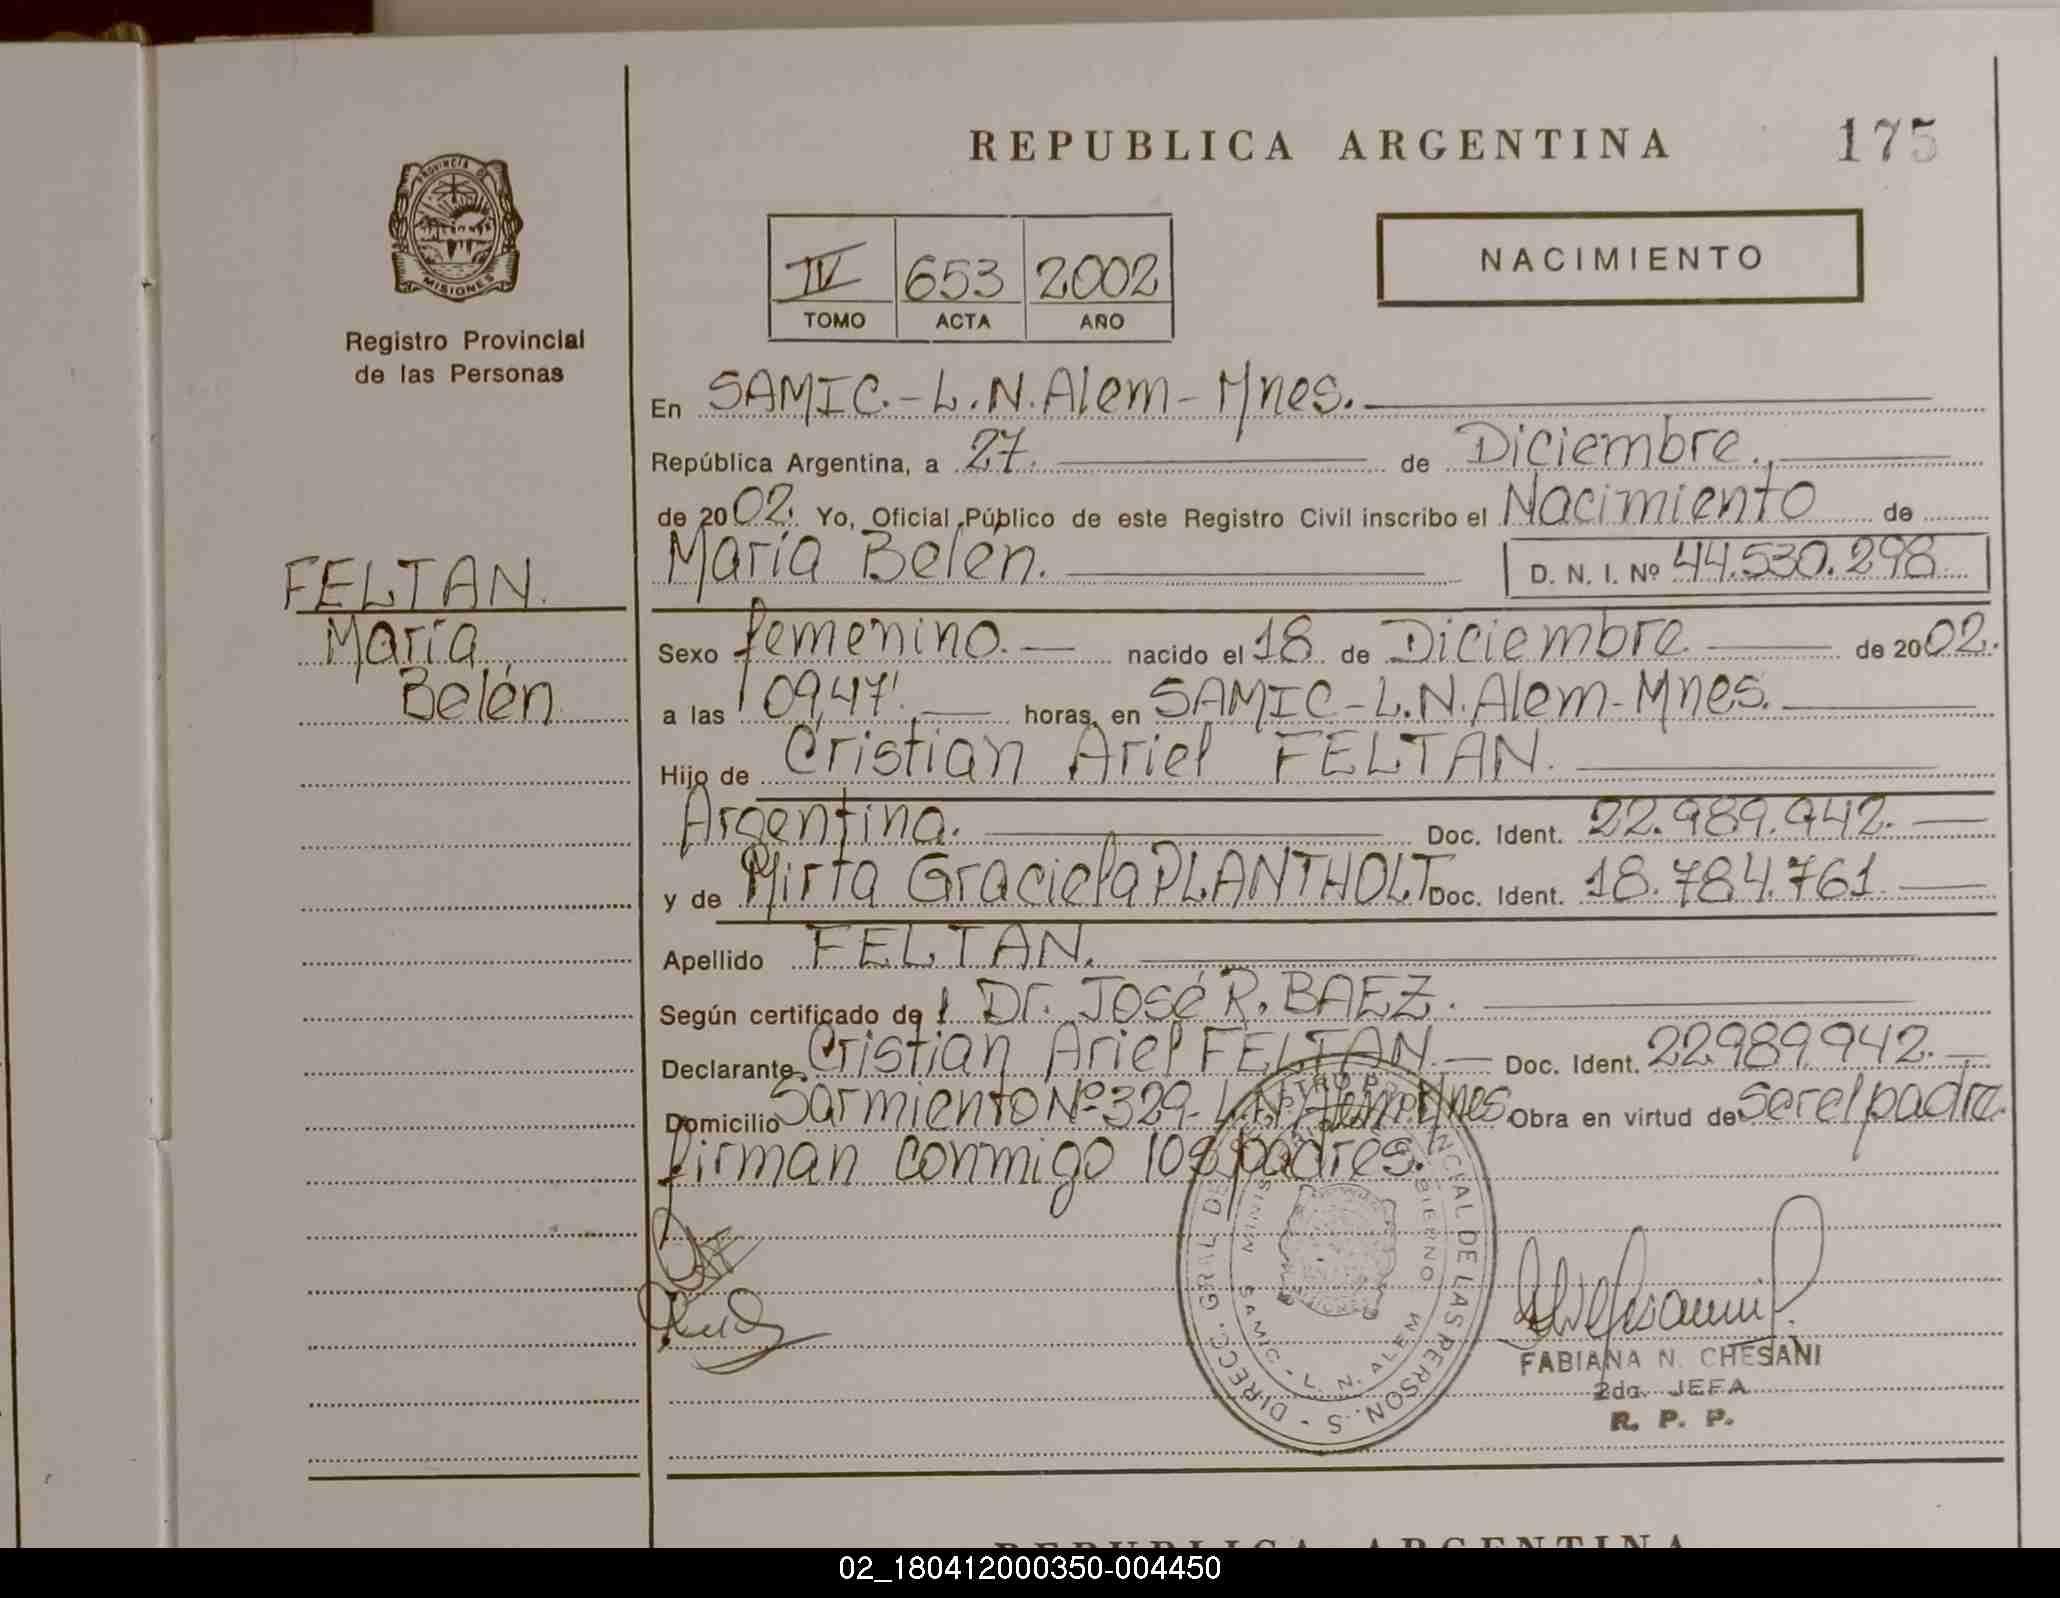 REPUBLICA ARGENTINA
175
PROVINCIA DE
MISIONES
Registro Provincial
de las Personas
IV 653 2002
TOMO ACTA AÑO
NACIMIENTO
En SAMIC.-L.N.Alem-Mnes.
República Argentina, a 27. de Diciembre.
de 2002. Yo, Oficial Público de este Registro Civil inscribo el Nacimiento de
María Belén. D. N. I. Nº 44.530.298
FELTAN.
María
Belén
Sexo femenino. nacido el 18 de Diciembre de 2002.
a las 09,47' horas, en SAMIC-L.N.Alem-Mnes.
Hijo de Cristian Ariel FELTAN.
Argentina. Doc. Ident. 22.989.942.
y de Mirta Graciela PLANTHOLT Doc. Ident. 18.784.761
Apellido FELTAN.
Según certificado de Dr. José R. BAEZ.
Declarante Cristian Ariel FELTAN. Doc. Ident. 22989942.
Domicilio Sarmiento Nº 329-L.N.Alem Mnes Obra en virtud de ser el padre.
firman conmigo los padres.
DIRECC. GRAL DE PROVINCIAL DE LAS PERSON.S
SAMIC - L. N. ALEM
FABIANA N. CHESANI
2da. JEFA
R. P. P.
REPUBLICA ARGENTINA
02_180412000350-004450